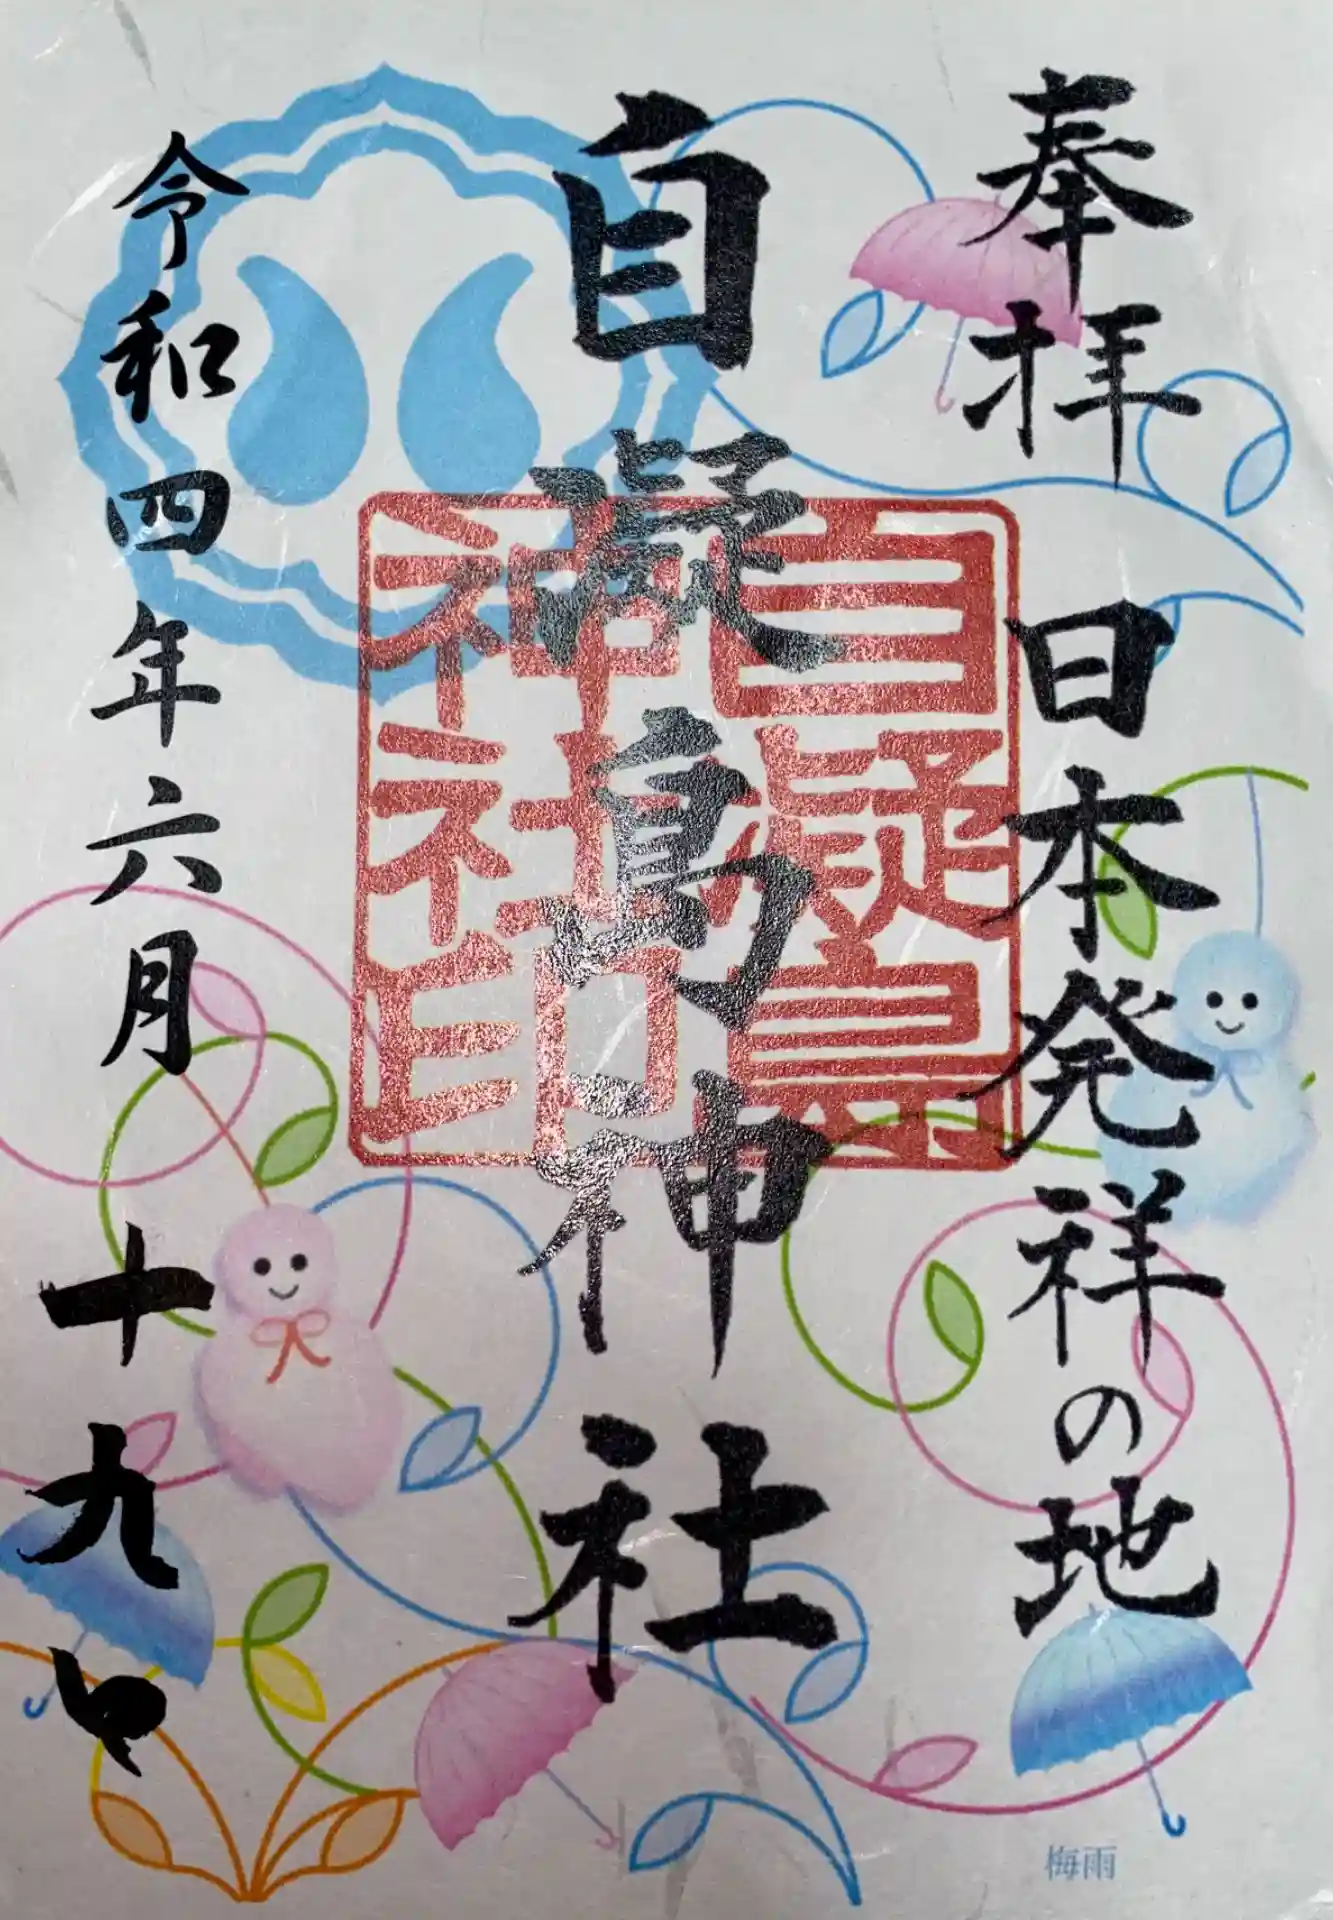 奉拝 日本発祥の地
自凝島神社
令和四年六月十九日
自凝島
神社印
梅雨